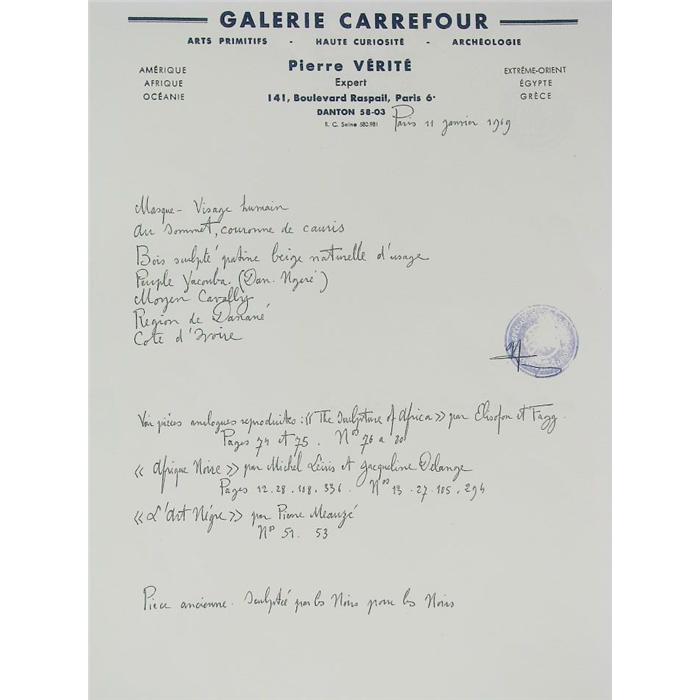 GALERIE CARREFOUR
ARTS PRIMITIFS - HAUTE CURIOSITÉ - ARCHÉOLOGIE
AMÉRIQUE
AFRIQUE
OCÉANIE
Pierre VÉRITÉ
Expert
141, Boulevard Raspail, Paris 6e
DANTON 58-03
R. C. Seine 580.981
EXTRÊME-ORIENT
ÉGYPTE
GRÈCE
Paris 11 janvier 1969
Masque - Visage humain
au sommet, couronne de cauris
Bois sculpté patine beige naturelle d'usage
Peuple Yacouba (Dan. Ngeré)
Moyen Cavally
Région de Danané
Cote d'Ivoire
Voir pièces analogues reproduites : « The Sculpture of Africa » par Elisofon et Fagg.
Pages 74 et 75. Nos 76 a 80
« Afrique Noire » par Michel Leiris et Jacqueline Delange
Pages 12.28.108.336. Nos 13.27.105.294
« L'Art Nègre » par Pierre Meauzé
No 51. 53
Piece ancienne. Sculptée par les Noirs pour les Noirs